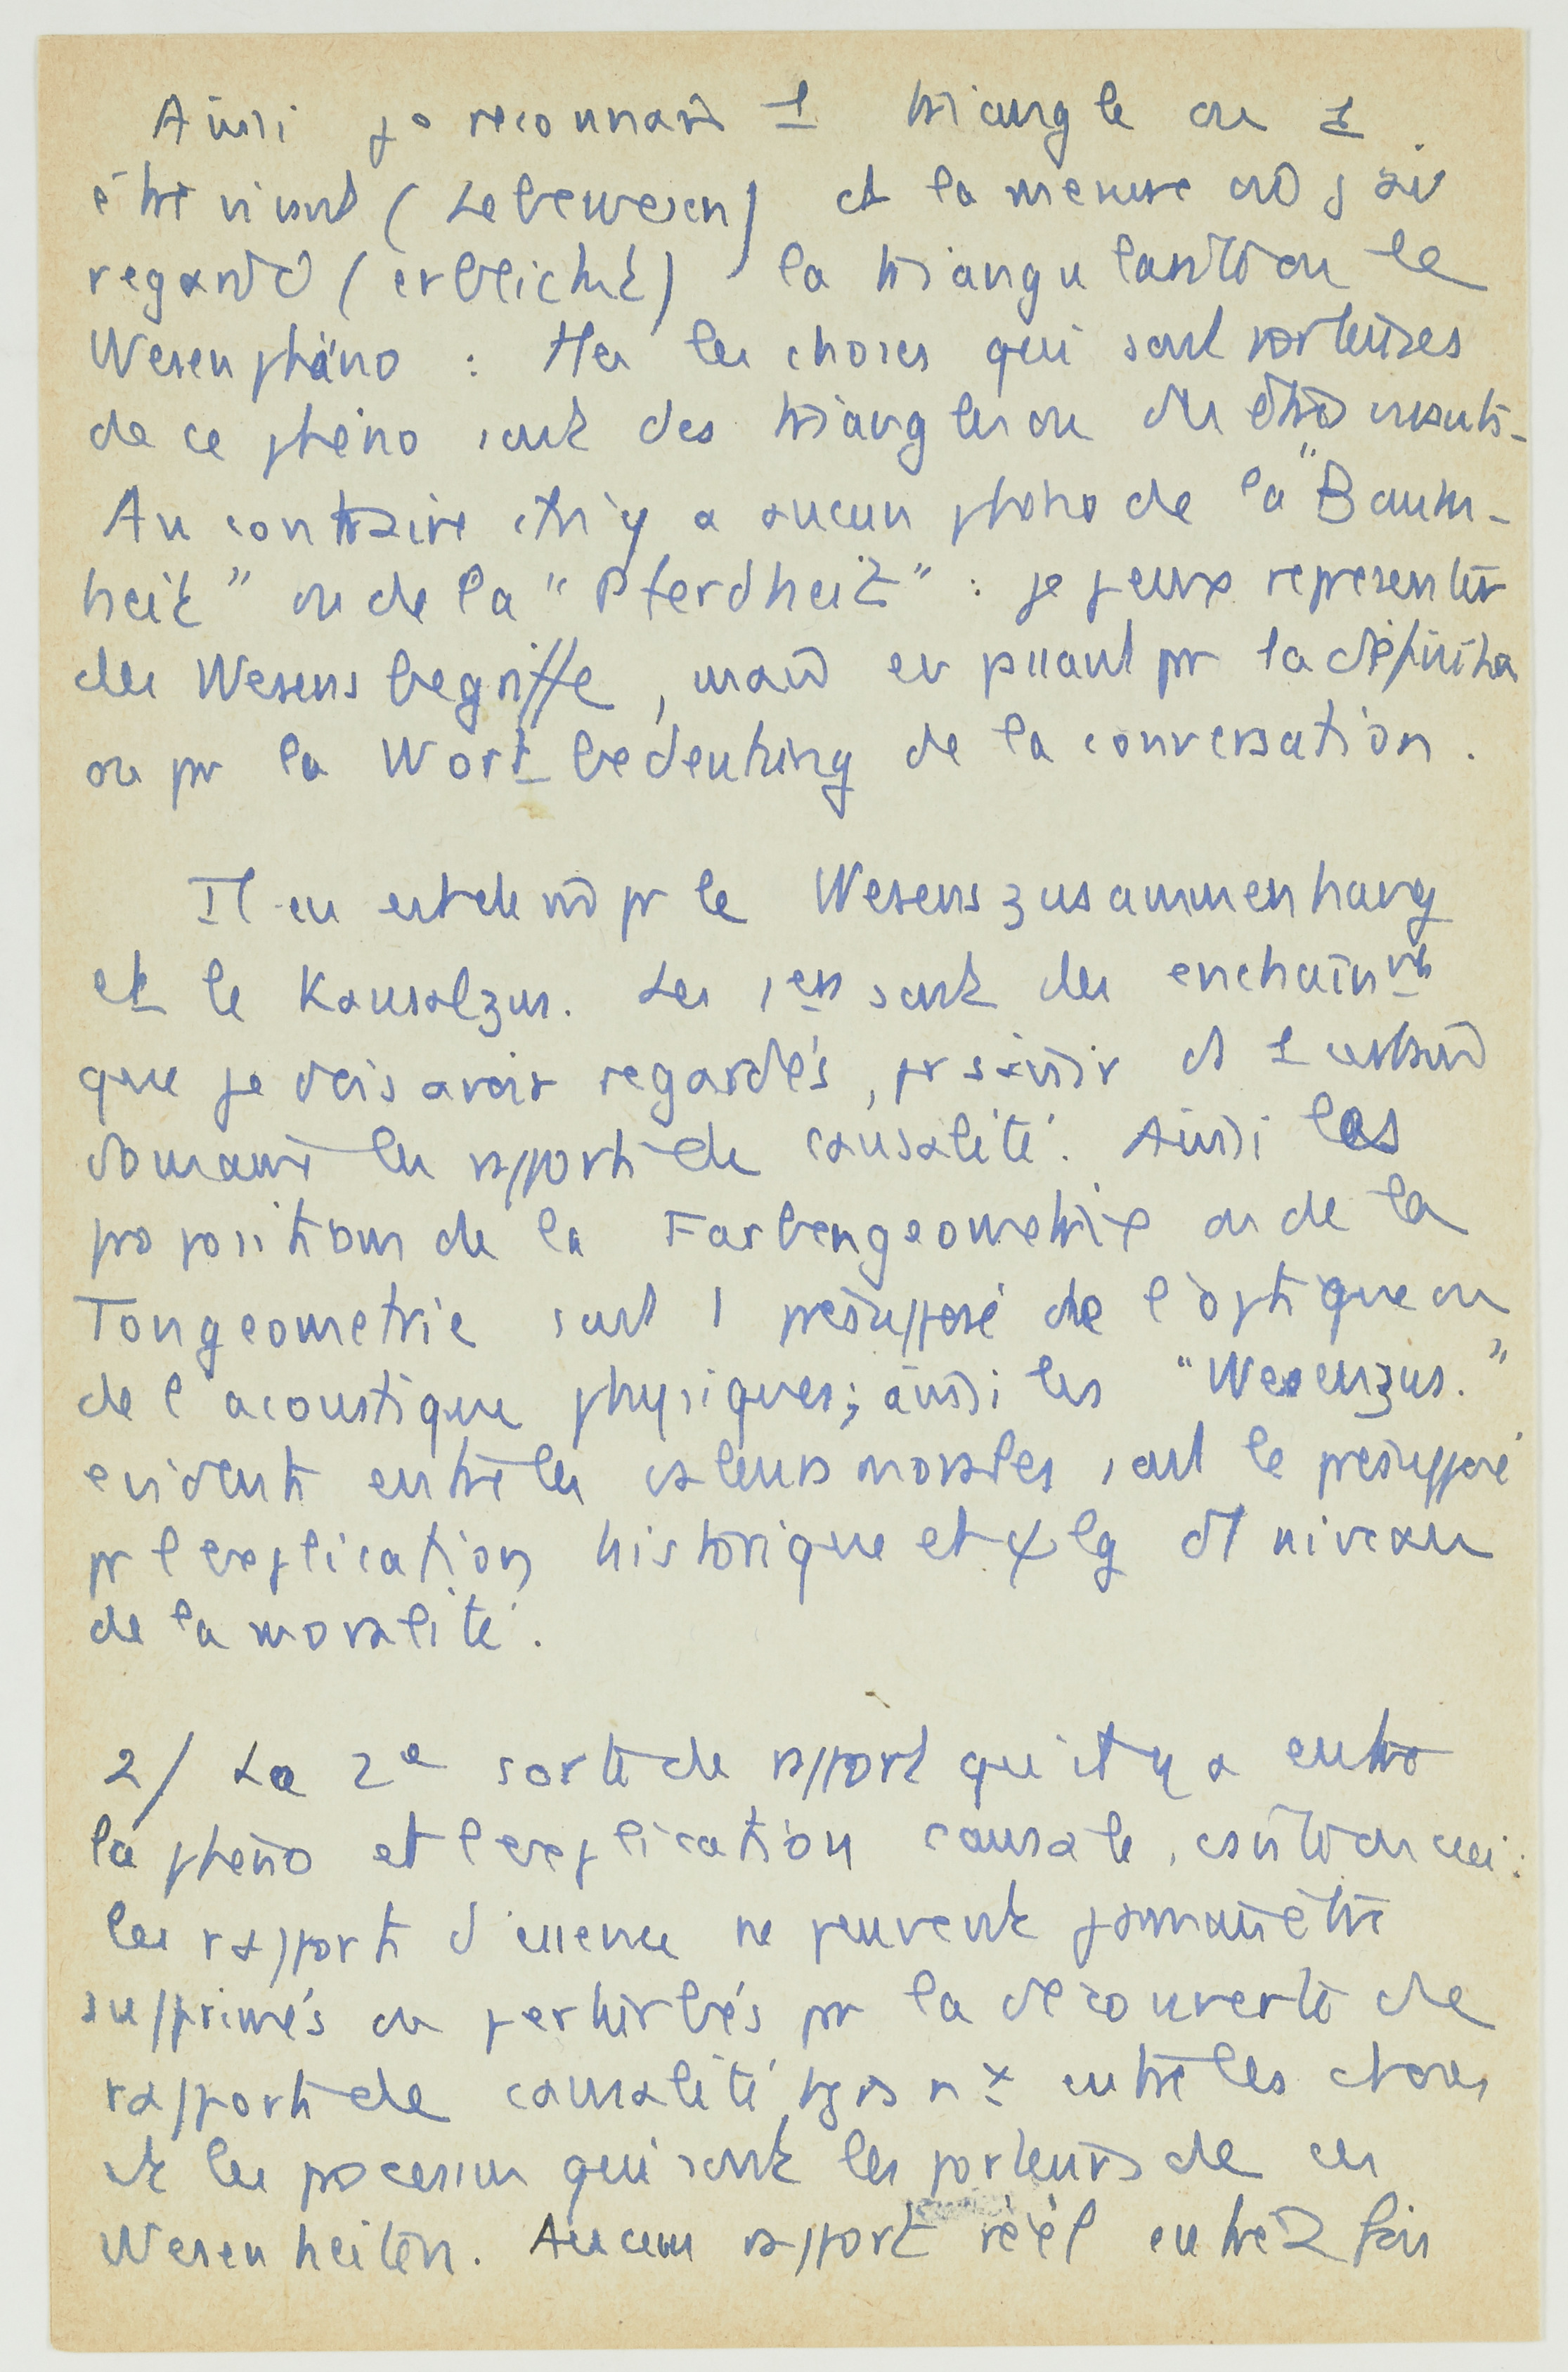 Ainsi je reconnais 1 triangle ou 1
être vivant (Lebewesen) ds la mesure où j'ai
regardé (erblickt) la triangularité ou le
Wesenphäno : ttes les choses qui sont porteuses
de ce phéno sont des triangles ou des êtres vivants.
Au contraire il n'y a aucun phéno de la "Baum-
heit" ou de la "Pferdheit" : je peux representer
des Wesensbegriffe, mais en passant pr la définition
ou pr la Wortbedeutung de la conversation.
Il en est de m̂ pr le Wesenszusammenhang
et le Kausalzus. Les 1ers sont des enchaînmts
que je dois avoir regardés, pr saisir ds 1 certain
domaine les rpports de causalité. Ainsi les
propositions de la Farbengeometrie ou de la
Tongeometrie sont 1 présupposé de l'optique ou
de l'acoustique physiques; ainsi les "Wesenzus."
evidents entre les valeurs morales sont le présupposé
pr l'explication historique et ψlg du niveau
de la moralité.
2/ La 2e sorte de rpport qu'il y a entre
la phéno et l'explication causale,
les rapports d'essence ne peuvent jamais être
supprimés ou perturbés pr la découverte de
rapports de causalité tjrs nx entre les choses
et les processus qui sont les porteurs de ces
Wesenheiten. Aucun rpport réel entre 2 fois